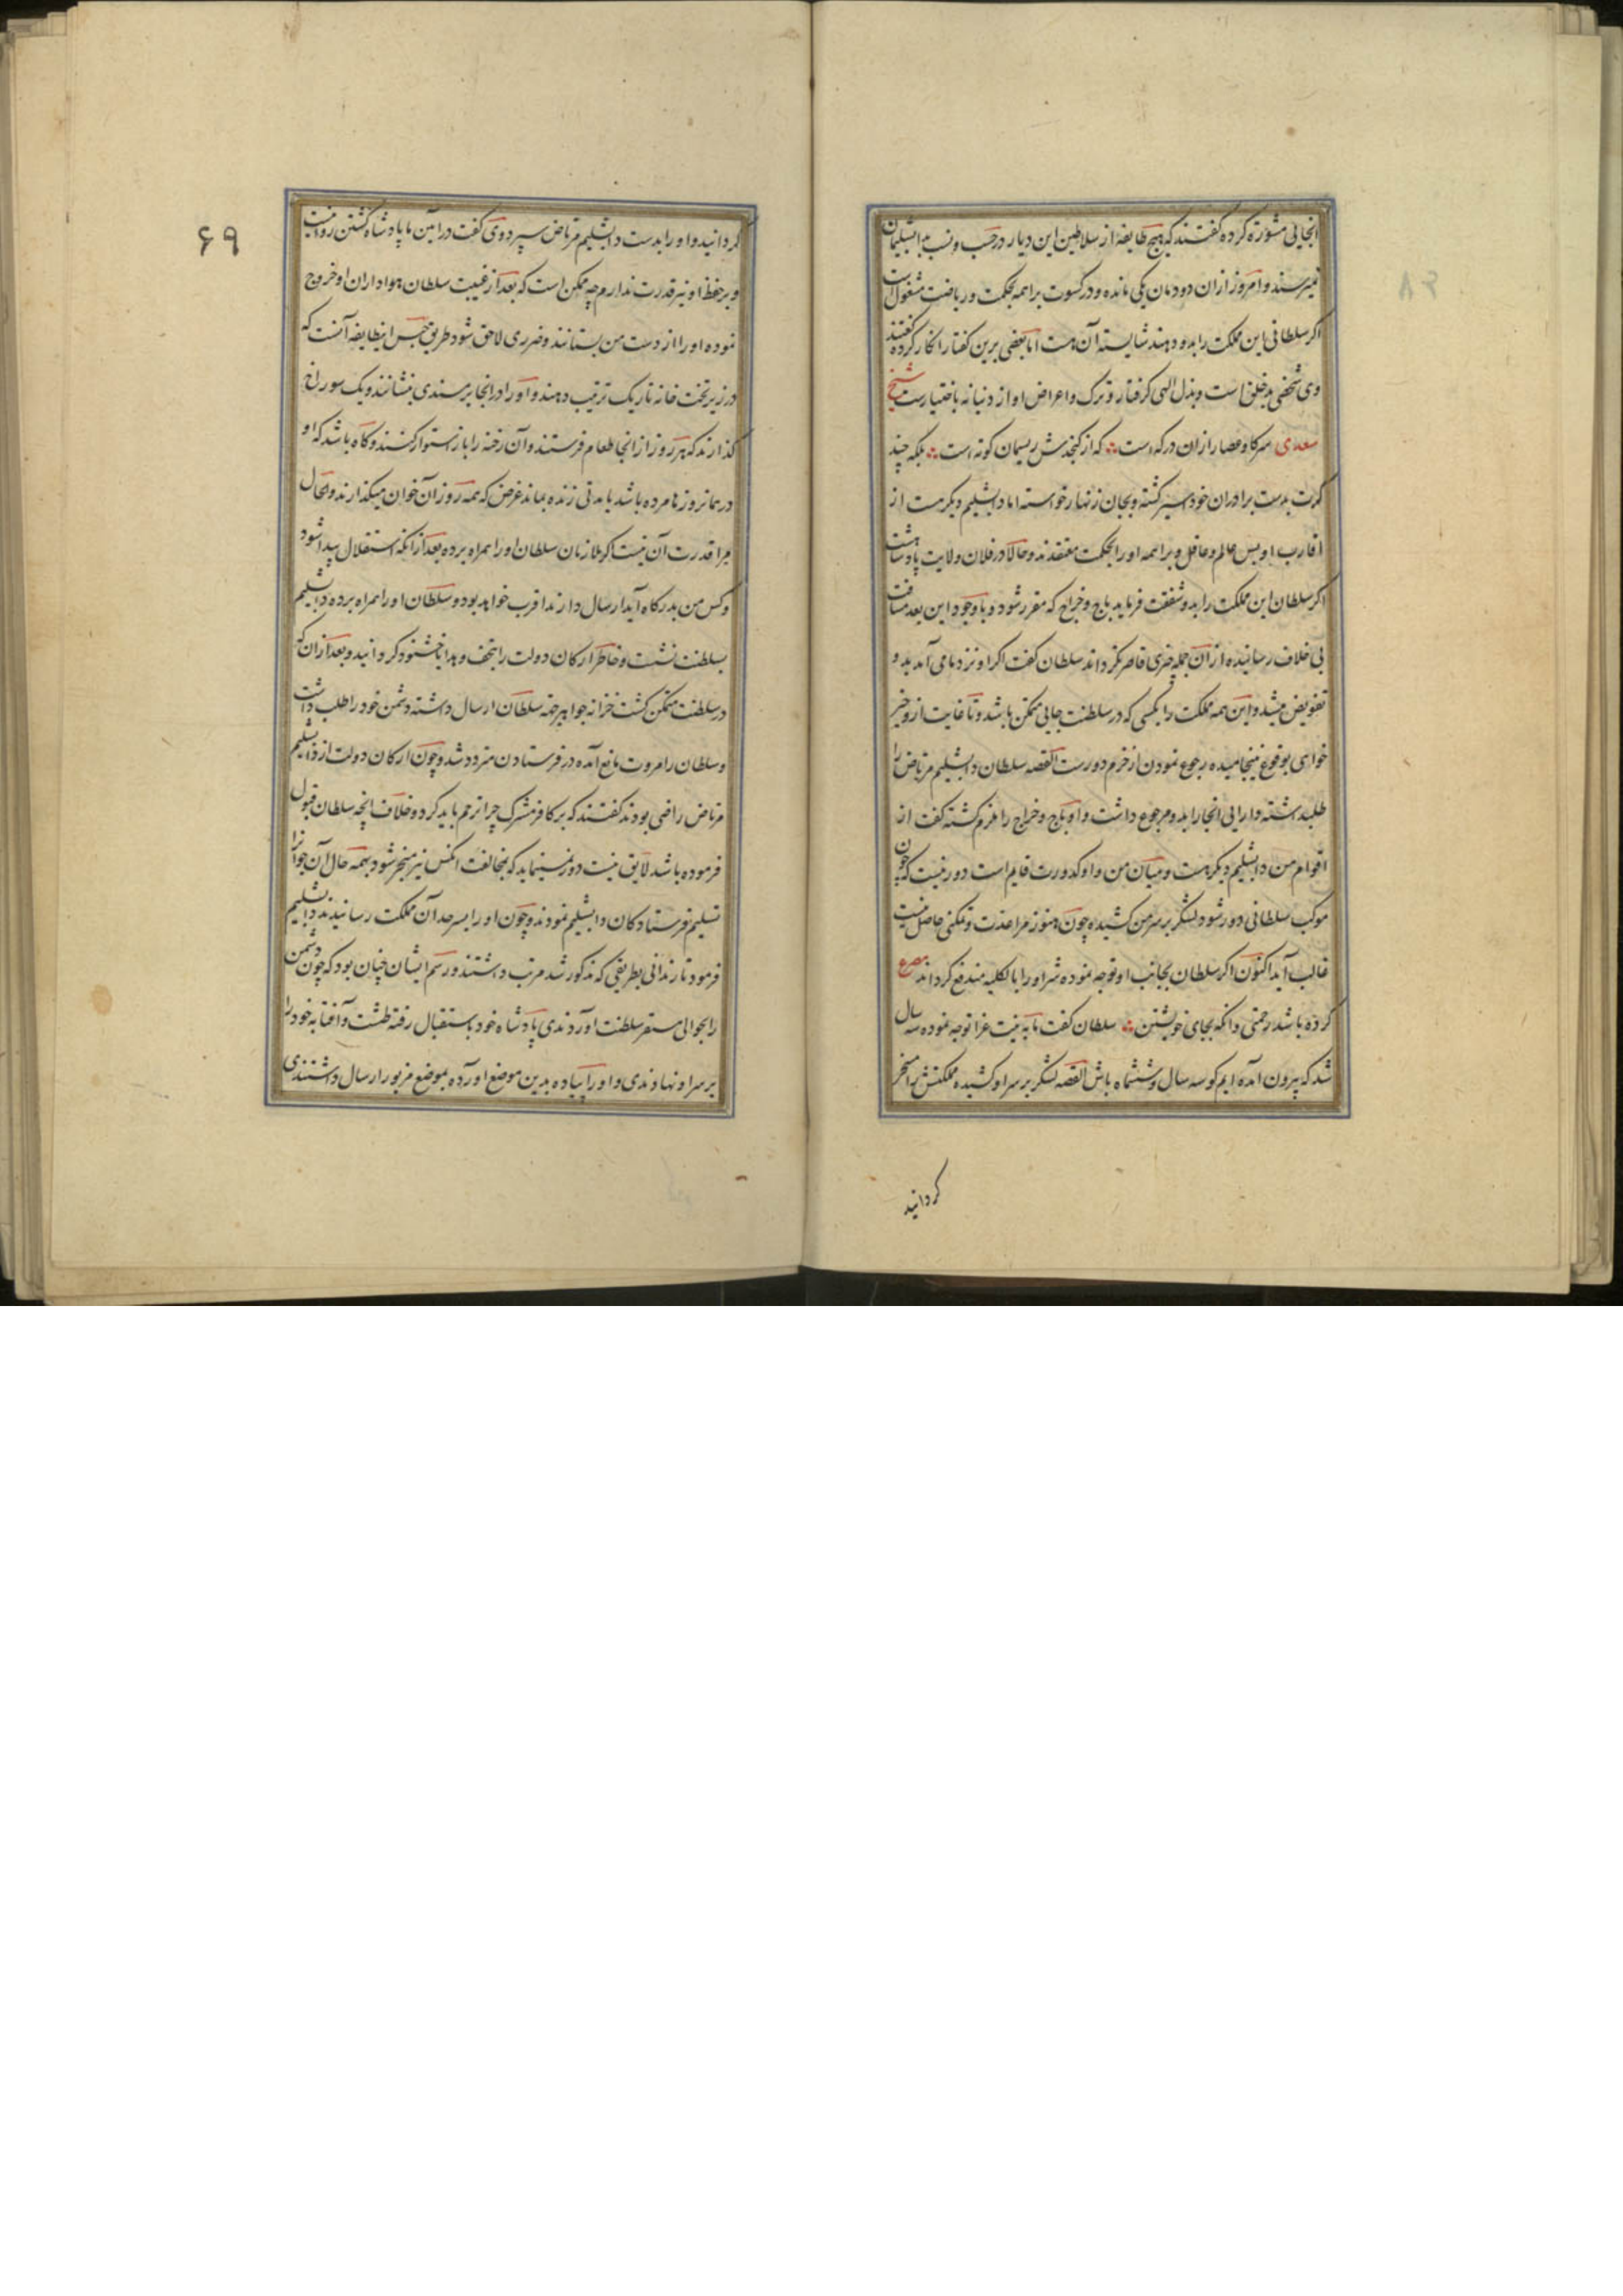 انجائی مشورة کرده گفتند که هیچ طایفه از سلاطین این دیار در حسب و نسب به دابشلیمان
نمیرسند و امروز ازان دودمان یکی مانده و در کسوت براهمه بحکمت و ریاضت مشغول است
اکر سلطانی این مملکت را بدو دهند شایسته آن هست اما بعضی برین کفتار انکار کرده کفتند
وی شخصی بدخلق است و بذل الهی کرفتار و ترک و اعراض او از دنیا نه باختیارست شیخ
سعدی سرکاو عصار ازان در که است که از کنجدش ریسمان کوته است بلکه چند
کرت بدست برادران خود اسیر کشته و بجان زنهار خواسته اما دابشلیم دیکر هست از
اقارب او بس عالم و عاقل و براهمه او را بحکمت معتقدند و حالا در فلان ولایت پادشاهست
اکر سلطان این مملکت را بدو شفقت فرماید باج و خراج که مقرر شود و با وجود این بعد مسافت
بی خلاف رسانیده ازان جمله چیزی قاصر نکرداند سلطان کفت اکر او نزد ما می آمد بدو
تفویض میشد و این همه مملکت را بکسی که در سلطنت جایی متمکن باشد و تا غایت ازو خیر
خواهی بوقوع نینجامیده رجوع نمودن از خرم دورست القصه سلطان دابشلیم مرتاض را
طلب داشته دارایی انجا را بدو مرجوع داشت و او باج و خراج را ملزم کشته کفت از
اقوام من دابشلیم دیکر هست و میان من و او کدورت قایم است دور نیست که چون
موکب سلطانی دور شود لشکر بر سر من کشیده چون هنوز مرا قدرت و تمکنی حاصل نیست
غالب آید اکنون اکر سلطان بجانب او توجه نموده شر او را بالکلیه مندفع کرداند مصرع
کرده باشد رحمتی وانکه بجای خویشتن سلطان کفت ما به نیت غزا توجه نموده سه سال
شد که بیرون آمده ایم کو سه سال و ششماه باش القصه لشکر بر سر او کشیده مملکتش را مسخر
کردانید
۶۹
کردانید و او را بدست دابشلیم مرتاض سپرد وی کفت در آئین ما پادشاه کشتن روا نیست
و بر حفظ او نیز قدرت ندارم چه ممکن است که بعد از غیبت سلطان هواداران او خروج
نموده او را از دست من بستانند و ضرری لاحق شود طریق حبس اینطایفه آنست که
در زیر تخت خانه تاریک ترتیب دهند و او را در انجا بر سندی بنشانند و یک سوراخ
کذارند که هر روز از انجا طعام فرستند و آن رخنه را باز استوار کنند و کاه باشد که او
در همانروزها مرده باشد یا مدتی زنده بماند غرض که همه روز آن خوان میکذارند و بحال
مرا قدرت آن نیست اکر ملازمان سلطان او را همراه برده بعد ازانکه استقلال پیدا شود
و کس من بدرکاه آید ارسال دارند اقرب خواهد بود و سلطان او را همراه برده دابشلیم
بسلطنت نشست و خاطر ارکان دولت را بتحف و هدایا خشنود کردانید و بعد ازان که
در سلطنت متمکن کشت خزانه جواهر بخدمت سلطان ارسال داشته دشمن خود را طلب داشت
و سلطان را مروت مانع آمده در فرستادن متردد شد و چون ارکان دولت از دابشلیم
مرتاض راضی بودند کفتند که بر کافر مشرک چرا ترحم باید کرد و خلاف آنچه سلطان قبول
فرموده باشد لایق نیست دور مینماید که بمخالفت انکس نیز منجر شود بهمه حال آن جوانرا
تسلیم فرستادکان دابشلیم نمودند و چون او را بسرحد آن مملکت رسانیدند دابشلیم
فرمود تا زندانی بطریقی که مذکور شد مرتب داشتند و رسم ایشان چنان بود که چون دشمن
را بحوالی مستقر سلطنت اوردندی پادشاه خود باستقبال رفته طشت و آفتابه خود را
بر سر او نهادندی و او را پیاده بدین موضع اورده بموضع مزبور ارسال داشتندی